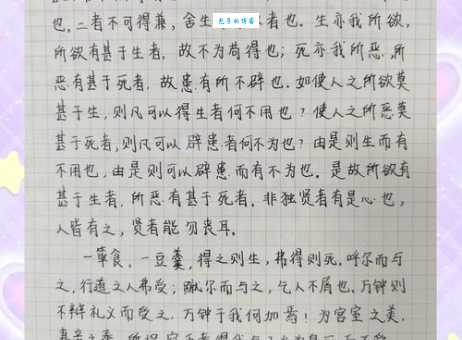 也,二者不可得兼,舍生 者也。生亦我所欲,
所欲有甚于生者,故不为苟得也;死亦我所恶,所
恶有甚于死者,故患有所不辟也。如使人之所欲莫
甚于生,则凡可以得生者何不用也?使人之所恶莫
甚于死者,则凡可以辟患者何不为也?由是则生而有
不用也,由是则可以辟患而有不为也。是故所欲有
甚于生者,所恶有甚于死者。非独贤者有是心也,
人皆有之,贤者能勿丧耳。
一箪食,一豆羹,得之则生,弗得则死。呼尔而与
之,行道之人弗受;蹴尔而与之,乞人不屑也。万钟则
不辩礼义而受之,万钟于我何加焉!为宫室之美,